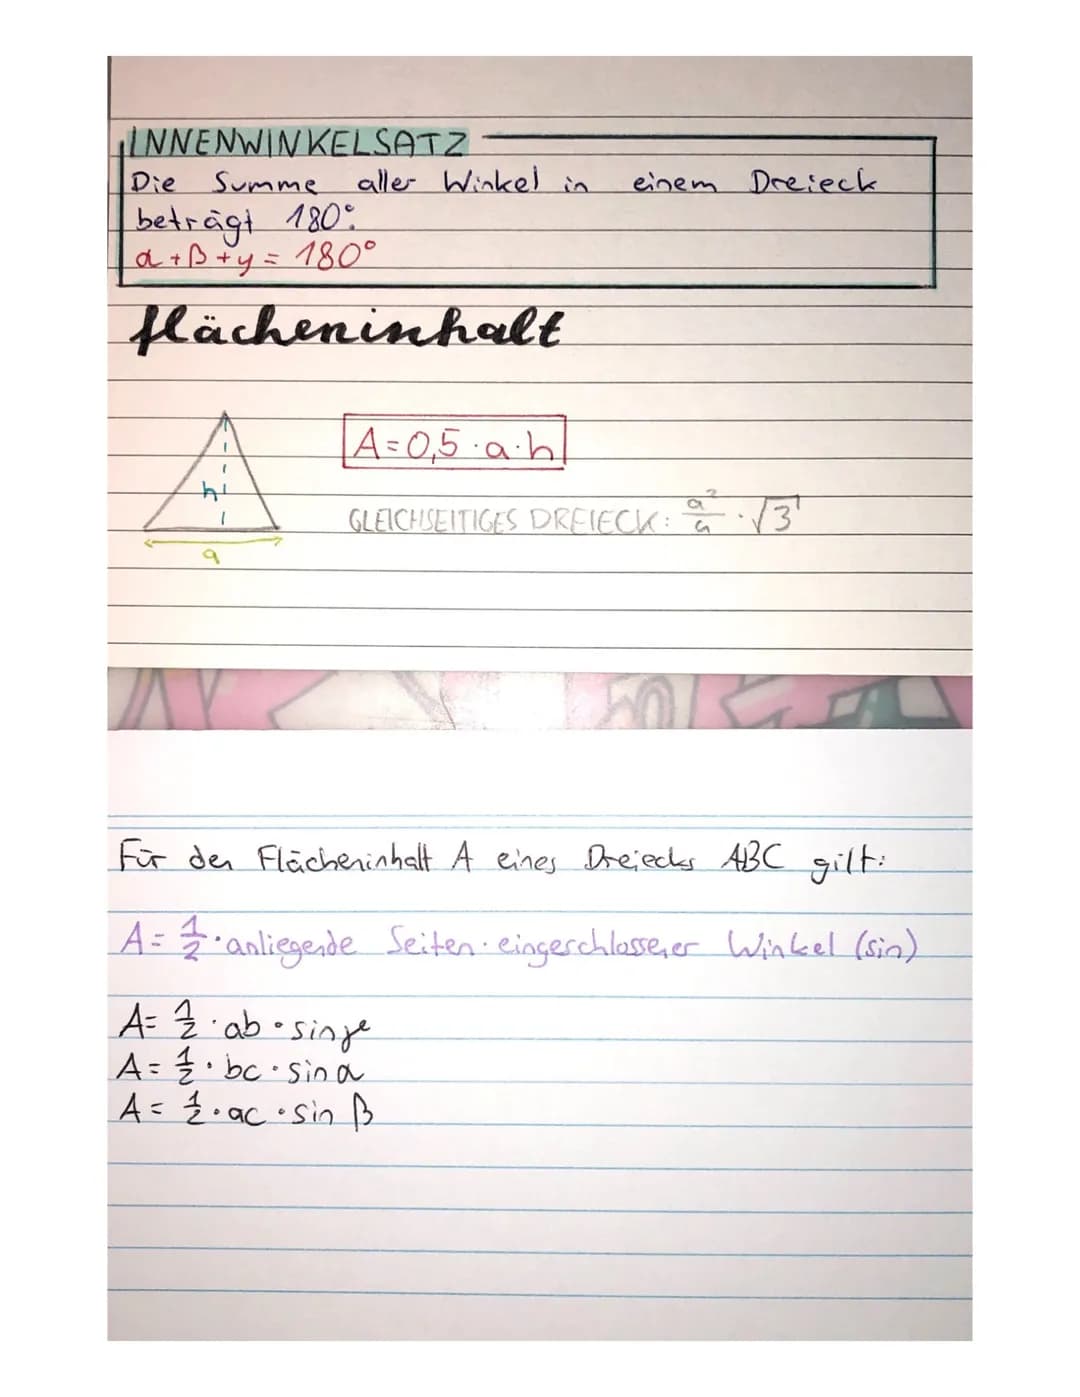 INNENWINKELSATZ
Die Summe aller Winkel in einem Dreieck
beträgt 180°.
α+β+γ = 180°
flächeninhalt
A=0,5·a·h
h
GLEICHSEITIGES DREIECK: a²/4 · √3
a
Für den Flächeninhalt A eines Dreiecks ABC gilt:
A= 1/2 · anliegende Seiten · eingeschlossener Winkel (sin)
A= 1/2 · ab · sin γ
A= 1/2 · bc · sin α
A= 1/2 · ac · sin β